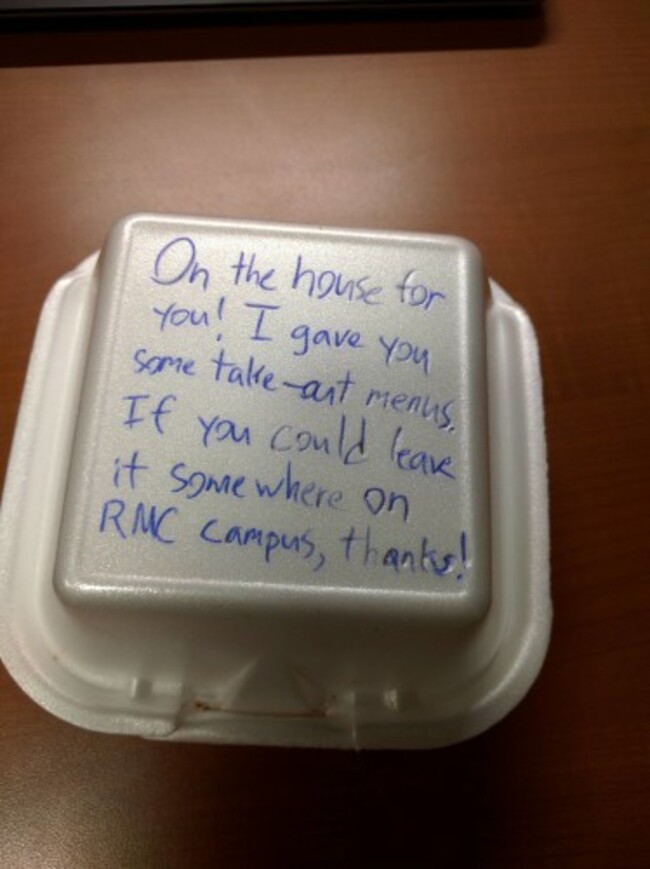 On the house for
you! I gave you
some take-out menus.
If you could leave
it somewhere on
RMC campus, thanks!